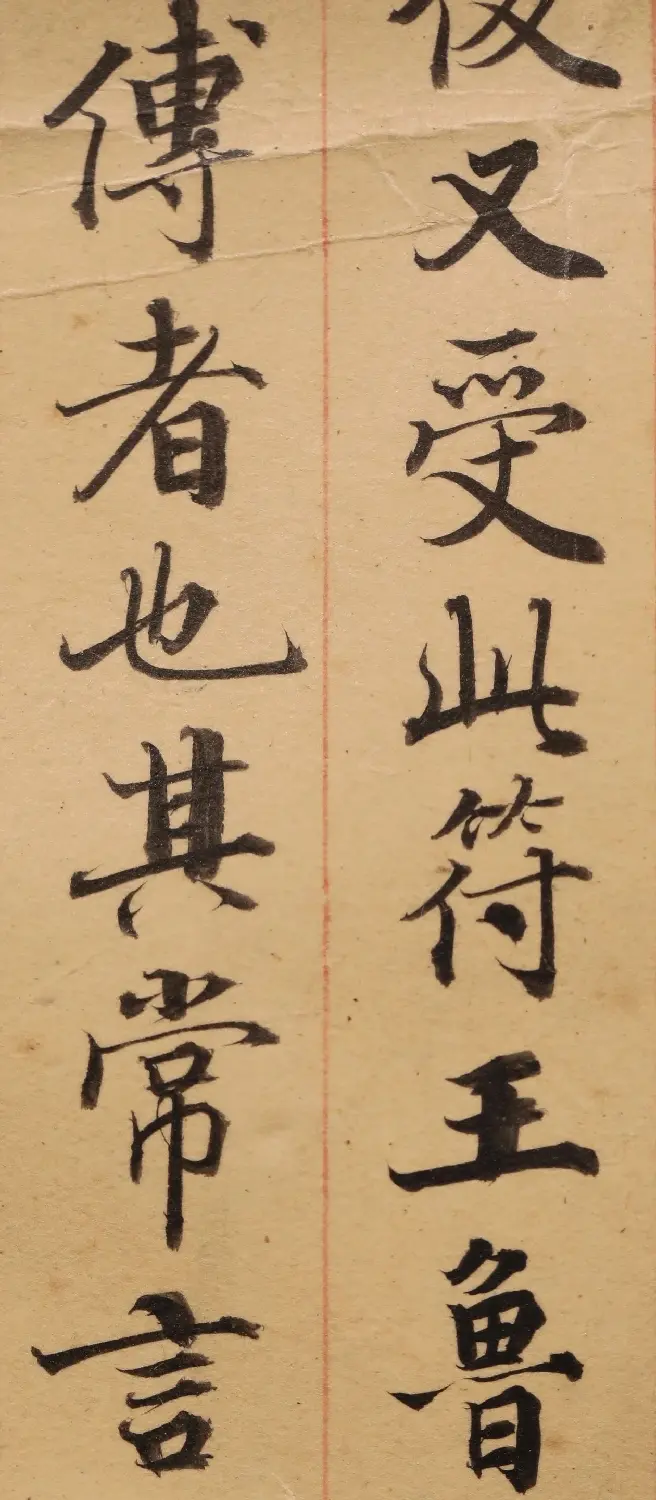 又受此符王魯
傅者也其常言